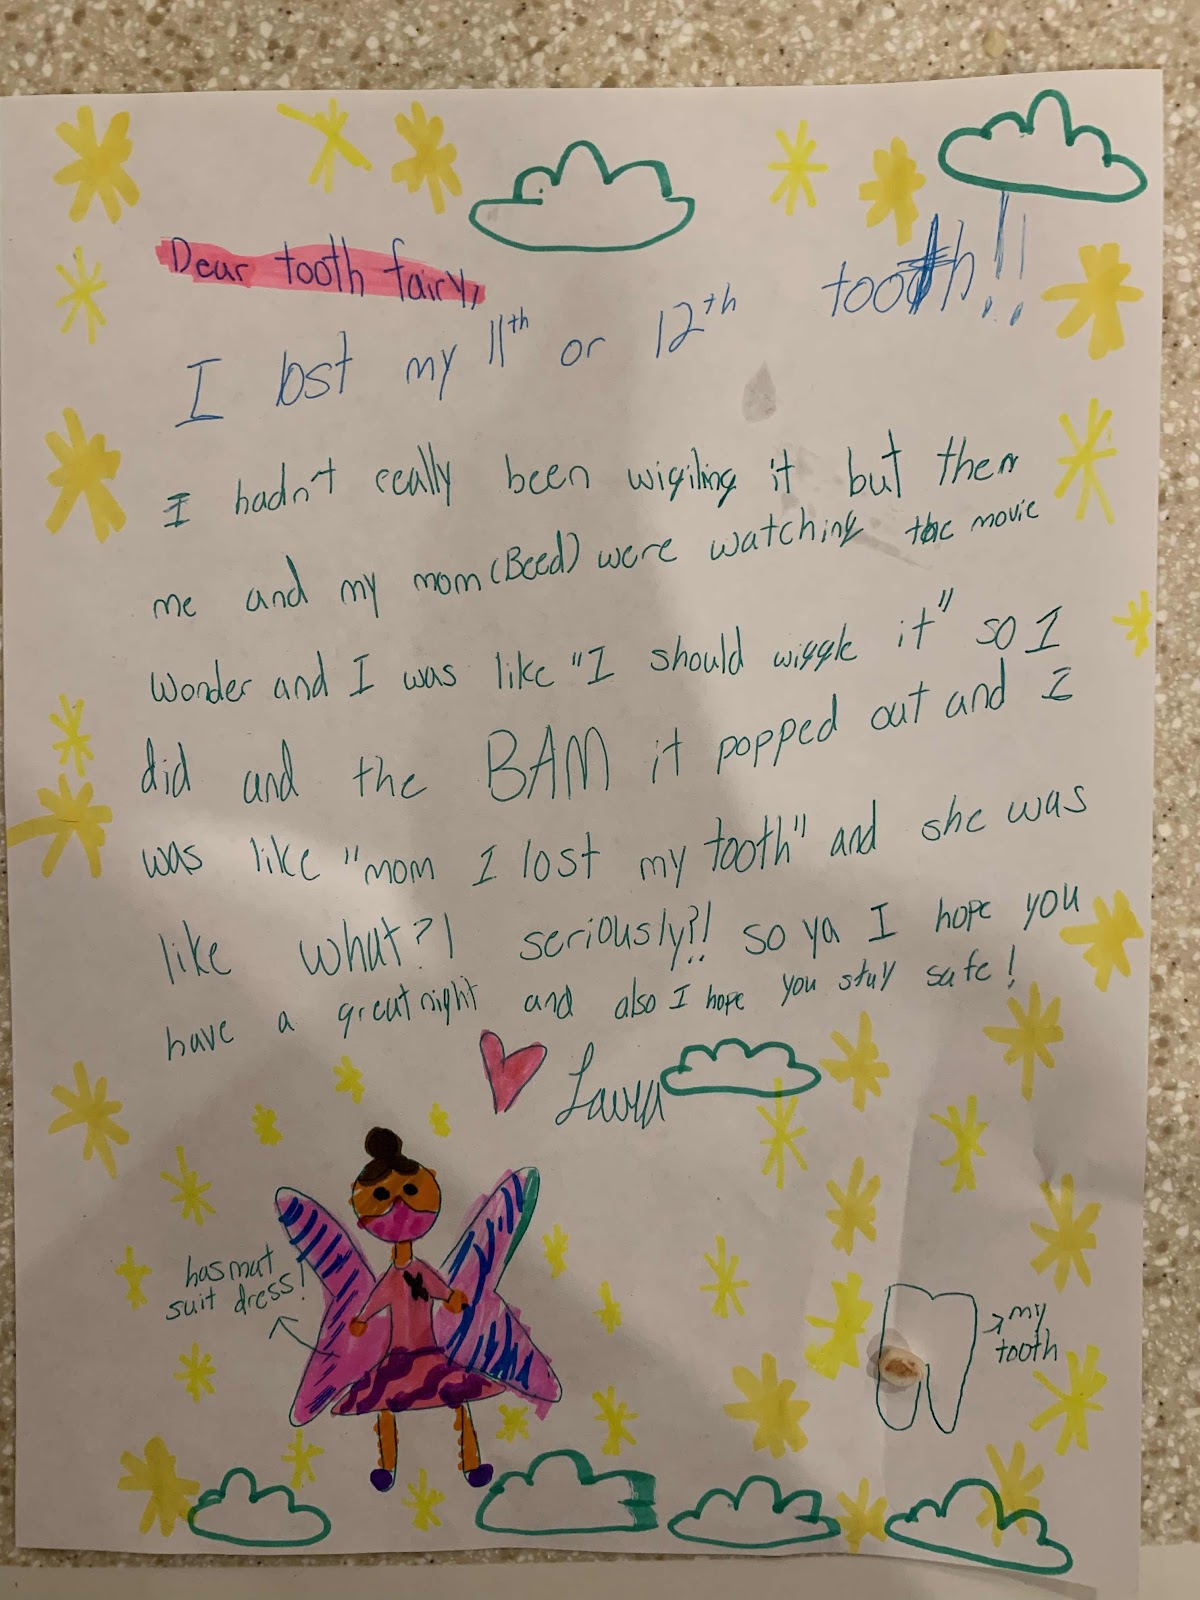 Dear tooth fairy,
I lost my 11th or 12th tooth!!
I hadn't really been wigiling it but then
me and my mom (Beed) were watching the movie
Wonder and I was like "I should wiggle it" so I
did and the BAM it popped out and I
was like "mom I lost my tooth" and she was
like what?! seriously?! so ya I hope you
have a great night and also I hope you stay safe!
Laura
hasmat
suit dress!
my
tooth